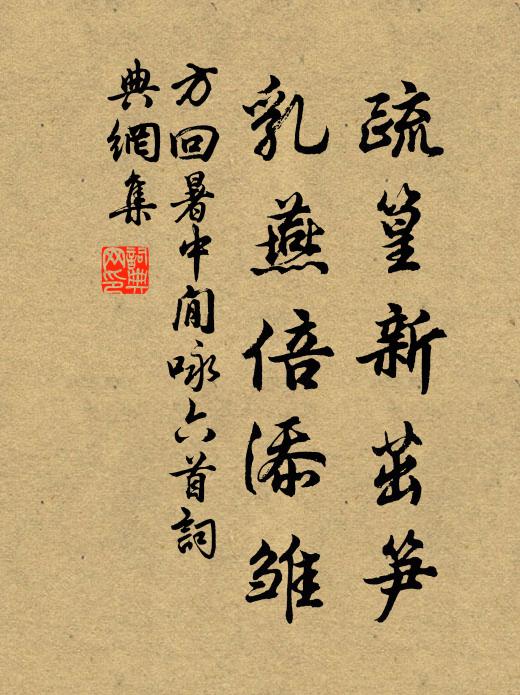 疏篁新茁笋
乳燕倍添雏
方回暑中闲咏六首詞
典網集
詞典
网印